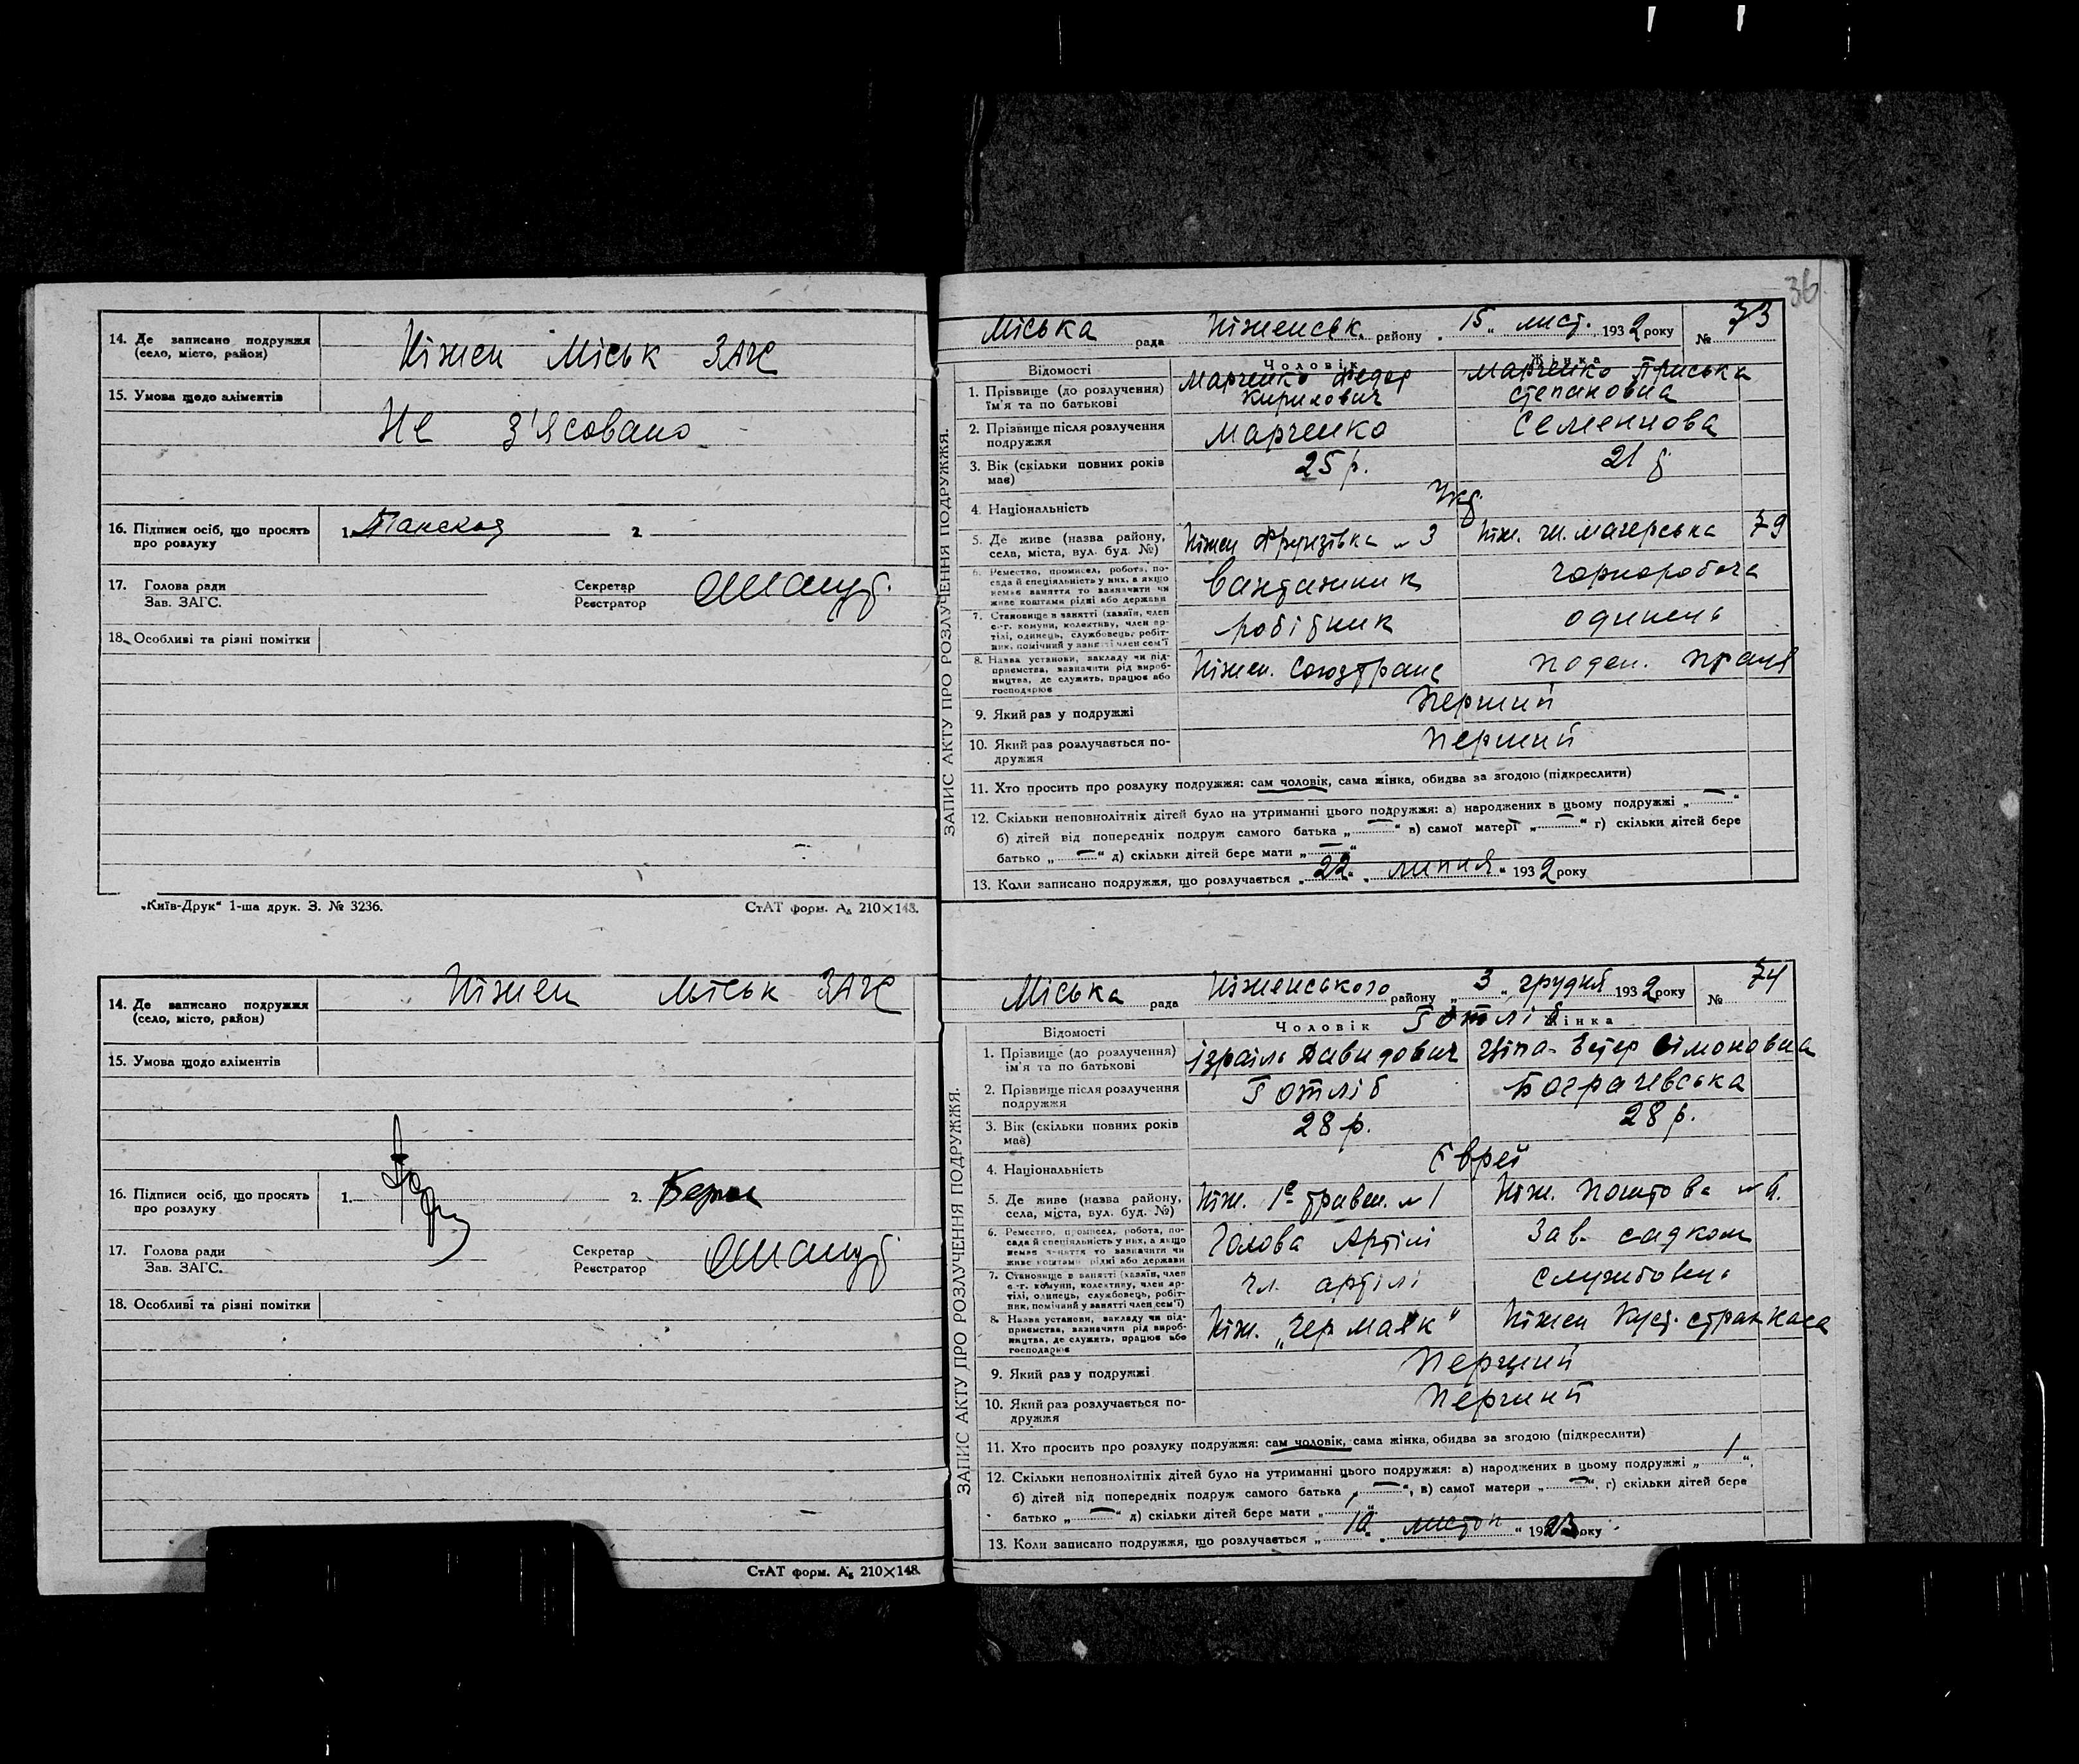 14. Де записано подружжя
(село, місто, район)
Ніжен Міськ ЗАГС
15. Умова щодо аліментів
Не з'ясовано
16. Підписи осіб, що просять
про розлуку
1.
2.
17. Голова ради
Зав. ЗАГС.
Секретар
Реєстратор
18. Особливі та різні помітки
„Київ-Друк“ 1-ша друк. З. № 3236.
СтАТ форм. А₅ 210×148.
14. Де записано подружжя
(село, місто, район)
Ніжен міськ ЗАГС
15. Умова щодо аліментів
16. Підписи осіб, що просять
про розлуку
1.
2.
17. Голова ради
Зав. ЗАГС.
Секретар
Реєстратор
18. Особливі та різні помітки
СтАТ форм. А₅ 210×148.
36
ЗАПИС АКТУ ПРО РОЗЛУЧЕННЯ ПОДРУЖЖЯ.
Міська рада Ніженськ. району „15„ лист. 1932 року № 73
Відомості Чоловік Жінка
1. Прізвище (до розлучення)
ім'я та по батькові
Марченко Федор
Кирилович
Марченко Приська
Степановна
2. Прізвище після розлучення
подружжя
Марченко
Семеннова
3. Вік (скільки повних років
має)
25 р.
21 р
4. Національність
Укр.
5. Де живе (назва району,
села, міста, вул. буд. №)
Ніжен Фрунзівка № 3
Ніж. 79
6. Ремество, промисел, робота, по-
сада й спеціяльність у них, а якщо
немає заняття то зазначити чи
живе коштами рідні або держави
Вантажник
чорноробоча
7. Становище в занятті (хазяїн, член
с.-г. комуни, колективу, член ар-
тілі, одинець, службовець, робіт-
ник, помічний у занятті член сем'ї
робітник
одинець
8. Назва установи, закладу чи під-
приємства, зазначити рід вироб-
ництва, де служить, працює або
господарює
Ніжен. Союзтранс
поден. праця
9. Який раз у подружжі
Перший
10. Який раз розлучається по-
дружжя
Перший
11. Хто просить про розлуку подружжя: сам чоловік, сама жінка, обидва за згодою (підкреслити)
12. Скільки неповнолітніх дітей було на утриманні цього подружжя: а) народжених в цьому подружжі „—“
б) дітей від попередніх подруж самого батька „—“ в) самої матері „—“ г) скільки дітей бере
батько „—“ д) скільки дітей бере мати „—“
13. Коли записано подружжя, що розлучається „22“ „липня“ 1932 року
ЗАПИС АКТУ ПРО РОЗЛУЧЕННЯ ПОДРУЖЖЯ.
Міська рада Ніженського району „3„ грудня 1932 року № 74
Відомості Чоловік Готліб Жінка
1. Прізвище (до розлучення)
ім'я та по батькові
Ізраїль Давидович
Ціпа-Естер Сімоновна
2. Прізвище після розлучення
подружжя
Готліб
Баграчевська
3. Вік (скільки повних років
має)
28 р.
28 р.
4. Національність
Єврей
5. Де живе (назва району,
села, міста, вул. буд. №)
Ніж. 1е травен. № 1
Ніж. Поштова № 6.
6. Ремество, промисел, робота, по-
сада й спеціяльність у них, а якщо
немає заняття то зазначити чи
живе коштами рідні або держави
Голова Артілі
Зав. садком
7. Становище в занятті (хазяїн, член
с.-г. комуни, колективу, член ар-
тілі, одинець, службовець, робіт-
ник, помічний у занятті член сем'ї)
чл. артілі
службовець
8. Назва установи, закладу чи під-
приємства, зазначити рід вироб-
ництва, де служить, працює або
господарює
Ніж. „Чер маяк“
Ніжен Куст. страхкаса
9. Який раз у подружжі
Перший
10. Який раз розлучається по-
дружжя
Перший
11. Хто просить про розлуку подружжя: сам чоловік, сама жінка, обидва за згодою (підкреслити)
12. Скільки неповнолітніх дітей було на утриманні цього подружжя: а) народжених в цьому подружжі „1“,
б) дітей від попередніх подруж самого батька „—“, в) самої матери „—“. г) скільки дітей бере
батько „—“ д) скільки дітей бере мати „1“
13. Коли записано подружжя, що розлучається „10“ „листоп“ 1923 року